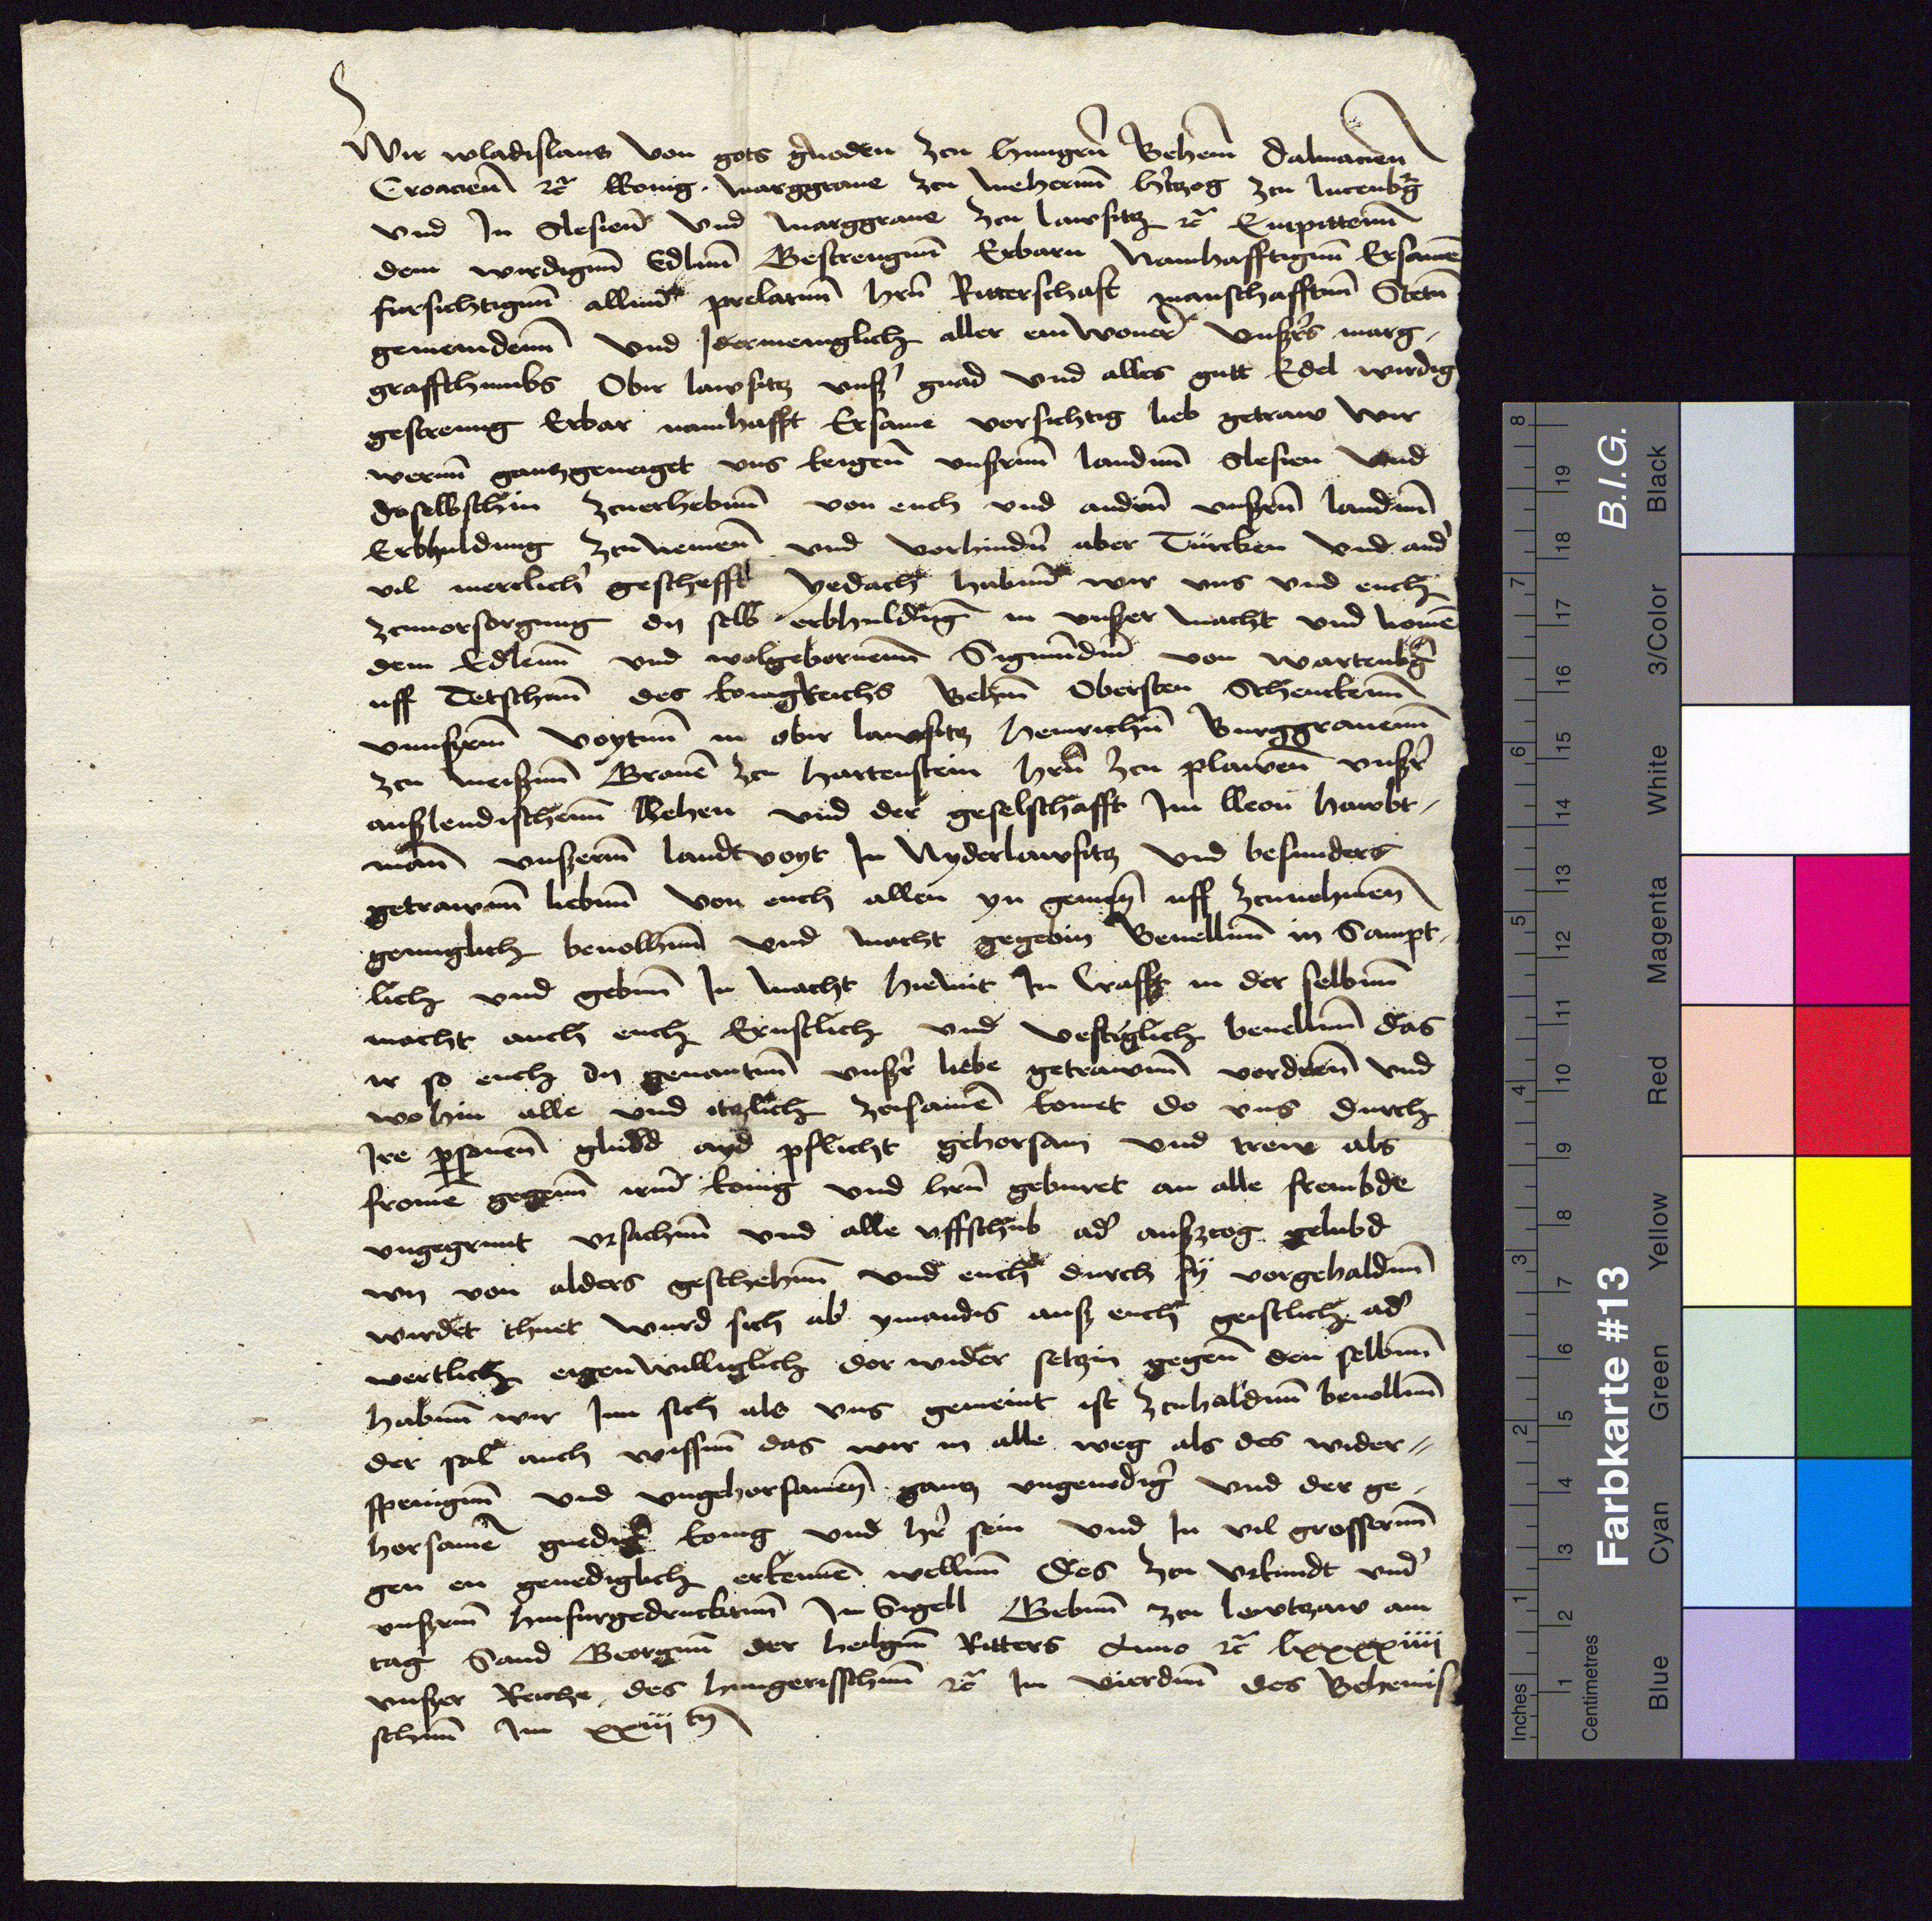 Wir wladislaus von gots gnoden zcu hungern Behem dalmacien
Croacien ꝛc konig marggraue zcu mehernn hertzog zcu lucenburg
vnd In Slesien vnd marggraue zcu lawsitz ꝛc Enpittenn
dem wirdigenn Edlenn Gestrengenn Erbarn Namhafftigenn Ersamen
fursichtigenn allenn prelatenn hern Ritterschaft manschafftenn Stetn
gemeindenn vnd Idermeniglich aller einwoner vnßers marg-
graffthumbs Obir lawsitz vnßer gnad vnd alles gutt Edel wirdig
gestreng Erbar namhafft Ersame vorsichtig lieb getraw Wir
werenn gantz geneiget vns keigen vnßernn landenn Slesien vnd
doselbsthin zcuerhebenn von euch vnd andern vnßern landenn
Erbhuldung zcunemen vnd vorhindern aber Türcken vnd ander
vil mercklicher geschefft yedach habenn wir vns vnd euch
zcuuorsorgung dy selb erbhuldung in vnßer macht vnd nomen
dem Edlenn vnd wolgebornenn Sigmunden von wartenberg
uff Tetschenn des konigkreichs Behem Obersten Schenckenn
vnnßernn voytenn in obir lawsitz heinrichen Burggrauenn
zcu meißenn Grauen zcu hartenstein hern zcu plawen vnßer
außlendischenn llehen vnd der geselschafft Im lleon hawbt-
mann vnßernn landtvoyt In Nyderlawsitz vnd besunders
getrawenn liebenn von euch allen yn gemeyn uff zcunehmen
genuglich beuolhenn vnd macht gegebin Beuellenn in Sampt-
lich vnd gebenn In macht hiemit In krafft in der selbenn
macht auch euch Ernstlich vnd vestiglich beuellenn das
ir so euch dy genantenn vnßer liebe getrawenn vordern vnd
wohin alle vnd itzlich zcusamen komet do vns durch
Ire personen glubd ayd pflicht gehorsam vnd trew als
fromen gegenn irem konig vnd hern geburet an alle frembde
vngegrunt vrsachenn vnd alle uffschub ader außzcog gelubd
wy von alders geschehenn vnd euch durch sy vorgehaldenn
wirdet thuet Wurd sich aber ymandis auß euch geistlich ader
wertlich eigenwilliglich dorwider setzin gegen den selbenn
habenn wir Inn sich als vns gemeint ist zcuhaldenn beuollenn
der sal auch wissenn das wir in alle weg als des wider-
spenigenn vnd vngehorsamen gantz vngenediger vnd der ge-
horsamen gnediger konig vnd her sein vnd In vil grossernn
gen en genediglich erkennen wellenn Des zcu Vrkundt vnder
vnßernn hinfurgedrucktenn In Sigell Gebenn zcu lewtzaw am
tag Sand Georgenn der heiligenn Ritters Anno ꝛc lxxxxiiii
vnßer Reiche des hungerisschenn ꝛc Im vierdenn des Behemis-
schenn Im xxiii ty
8 7 6 5 4 3 2 1 Inches
19 18 17 16 15 14 13 12 11 10 9 8 7 6 5 4 3 2 1 Centimetres
Farbkarte #13 B.I.G.
Blue Cyan Green Yellow Red Magenta White 3/Color Black